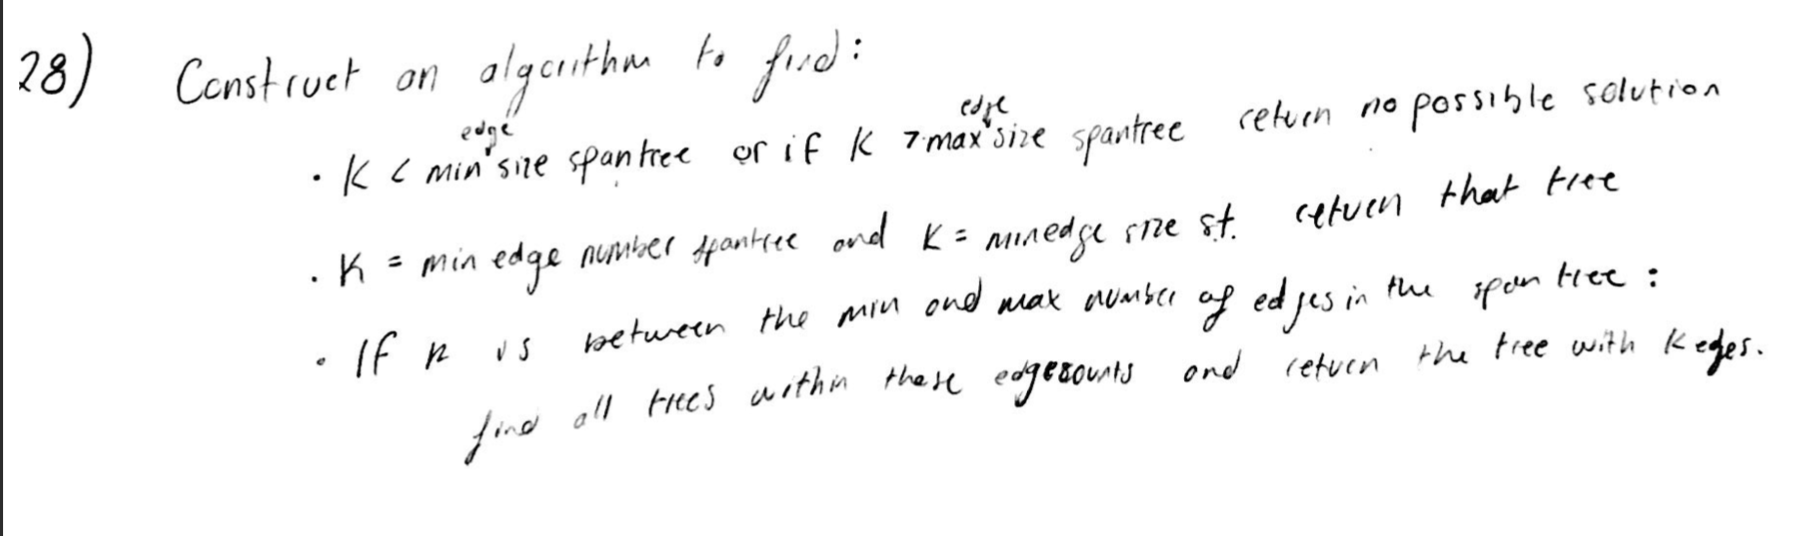 28) Construct an algorithm to find:
edge edge
• K < min size spantree or if K > max size spantree return no possible solution
• K = min edge number spantree and K = minedge size st. return that tree
• If k is between the min and max number of edges in the span tree:
find all trees within these edgecounts and return the tree with K edges.